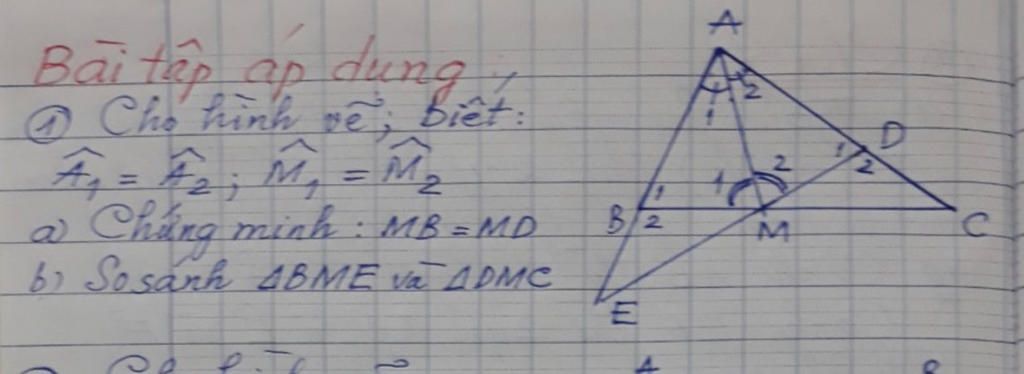 Bài tập áp dụng;
① Cho hình vẽ; biết:
Â₁ = Â₂; M̂₁ = M̂₂
a) Chứng minh: MB = MD
b) So sánh ΔBME và ΔDMC
A
1 2
D
1 2
B
1 2
1 2
M
C
E